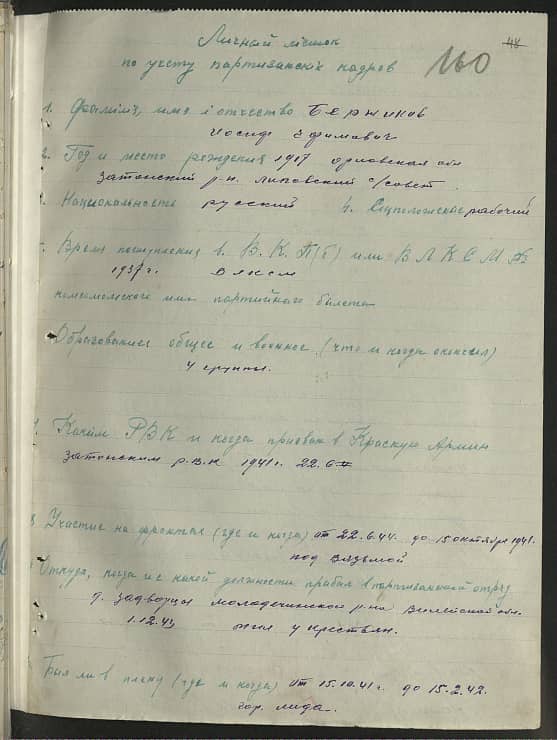 48
160
Личный листок
по учету партизанских кадров
1. Фамилия, имя и отчество Бержиков
Иосиф Ефимович
2. Год и место рождения 1917 орловская обл
Затонский р-н. Липовский с/совет.
3. Национальность русский 4. Соцположение рабочий
5. Время поступления в В.К.П(б) или ВЛКСМ №
1937 г. ВЛКСМ
комсомольского или партийного билета
Образование общее и военное (что и когда окончил)
4 группы.
7. Каким РВК и когда призван в Красную Армию
Затонским р.в.к 1941 г. 22.6
8. Участие на фронтах (где и когда) от 22.6.41. до 15 октября 1941.
под Вязьмой
Откуда, когда и с какой должности прибыл в партизанский отряд
д. Задворцы Молодечинской р-на Вилейской обл.
1.12.43 жил у крестьян.
Был ли в плену (где и когда) от 15.10.41 г. до 15.2.42.
гор. Лида.